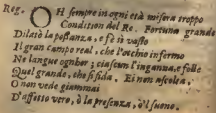 Reg. OH sempre in ogni età misera troppo
Condition del Re. Fortuna grande
Dilatò la possanza, e fè sì vasto
Il gran campo real, che l'occhio infermo
Ne langue ogn'hor; ciascun l'inganna, e folle
Quel grande, che si fida. Ei non ascolta
O non vede giammai
D'affetto vero, ò la presenza, ò'l suono.